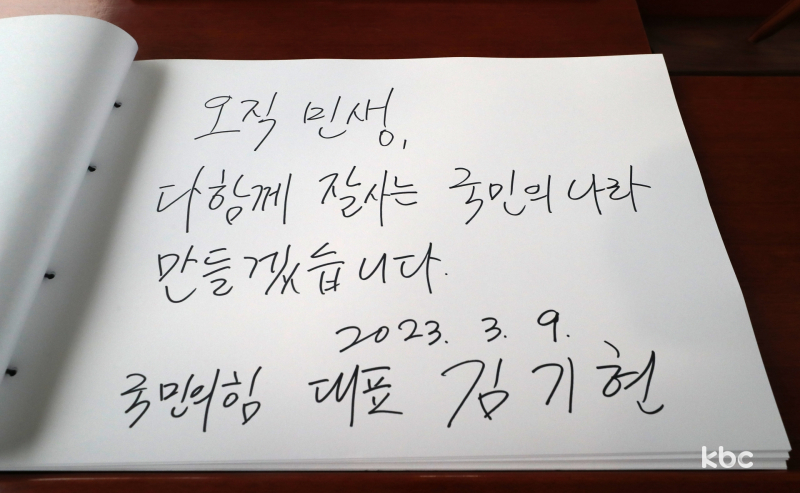 오직 민생,
다함께 잘사는 국민의나라
만들겠습니다.
2023. 3. 9.
국민의힘 대표 김기현
kbc